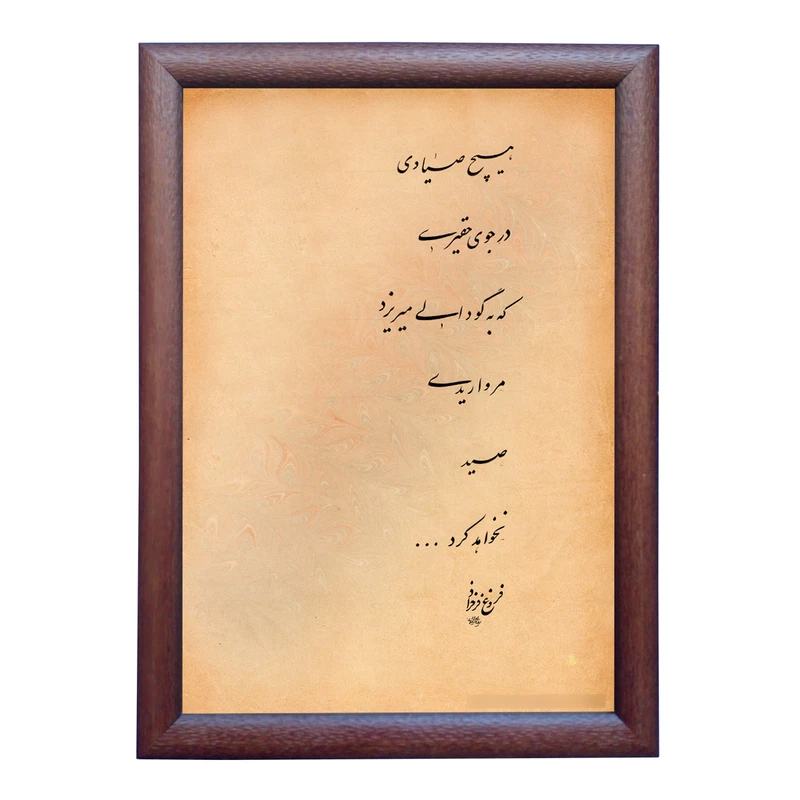 هیچ صیادی
در جوی حقیری
که به گودالی میریزد
مرواریدی
صید
نخواهد کرد ...
فروغ فرخزاد